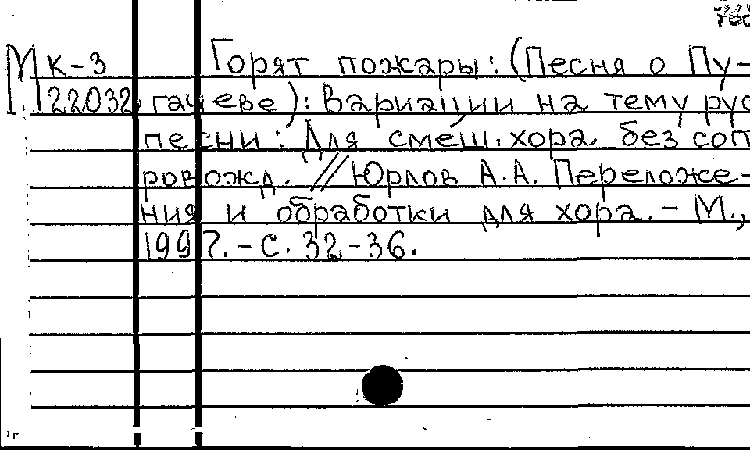 М К-3 Горят пожары: (Песня о Пу-
22032 гачеве): Вариации на тему рус
песни: Для смеш. хора. без соп
ровожд. // Юрлов А.А. Переложе-
ния и обработки для хора. - М.,
1997. - С. 32-36.